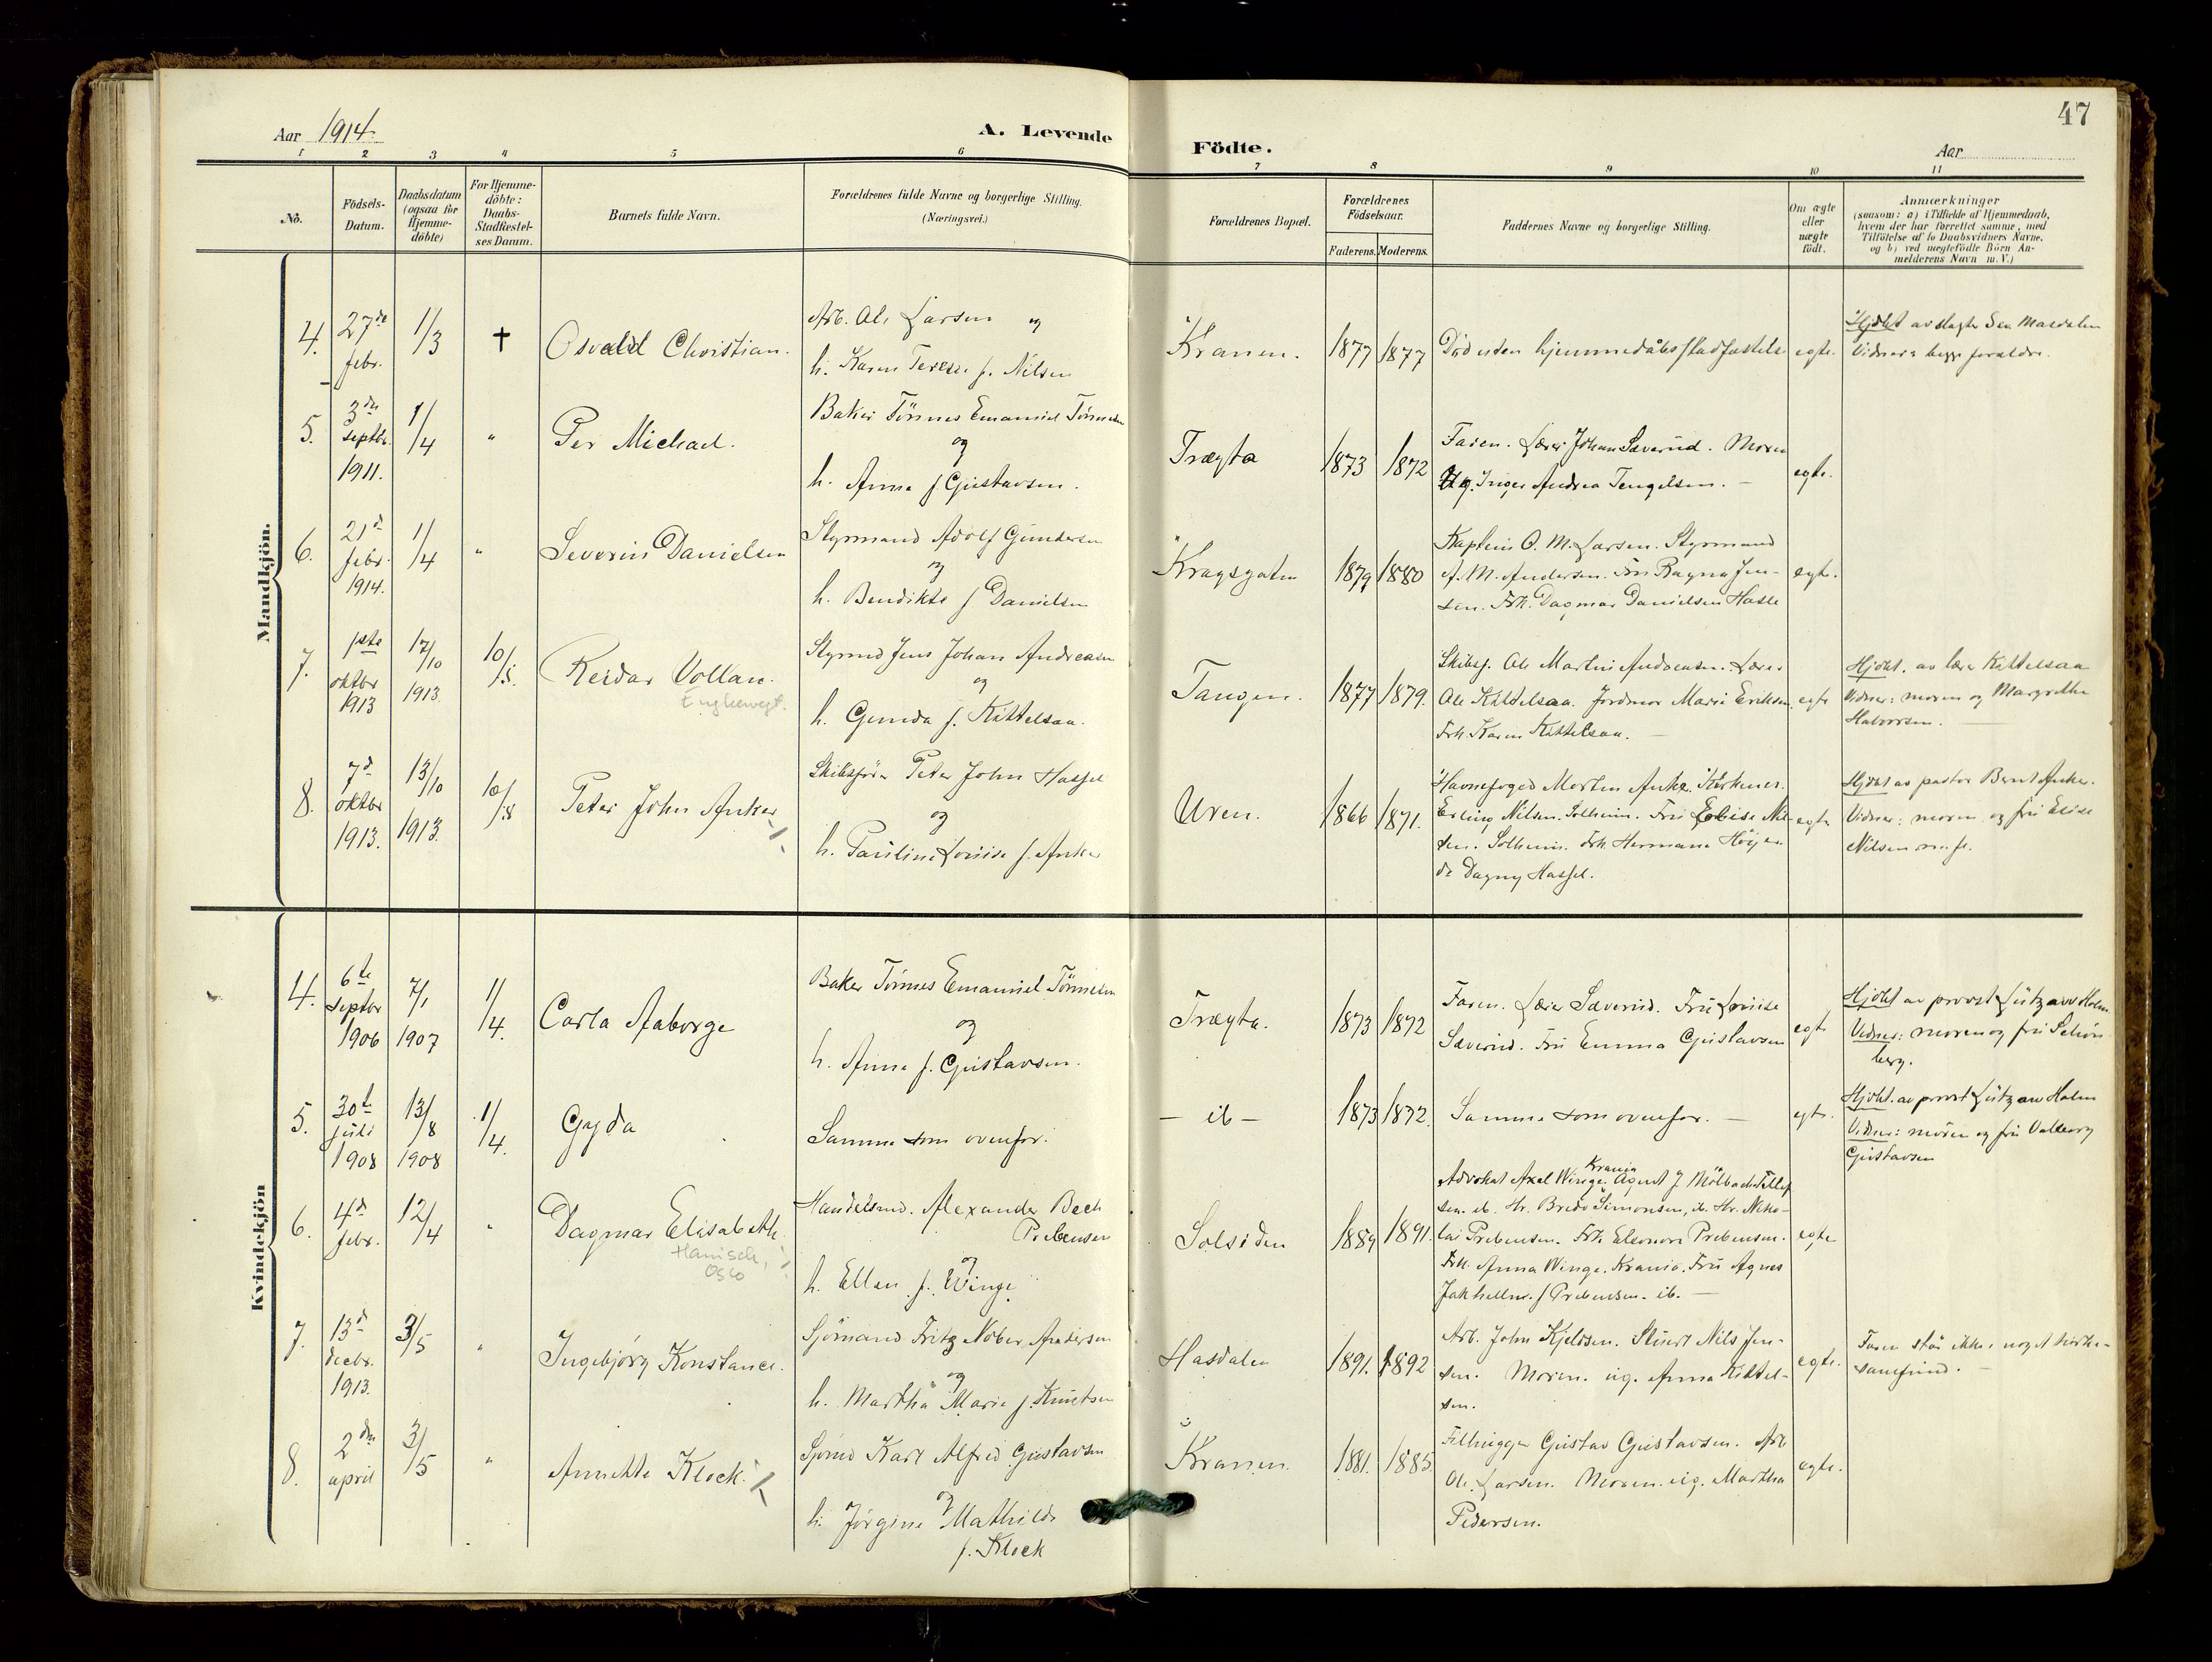 47
Aar 1914.
A. Levende Födte.
Aar
1 2 3 4 5 6 7 8 9 10 11
No.
Födsels-
Datum.
Daabsdatum
(ogsaa for
Hjemme-
döbte)
For Hjemme-
döbte:
Daabs-
Stadfæstel-
ses Datum.
Barnets fulde Navn.
Forældrenes fulde Navne og borgerlige Stilling.
(Næringsvei.)
Forældrenes Bopæl.
Forældrenes
Födselsaar.
Faderens. Moderens.
Faddernes Navne og borgerlige Stilling.
Om ægte
eller
uægte
födt.
Anmærkninger
(saasom: a) i Tilfælde af Hjemmedaab,
hvem der har forrettet samme, med
Tilföielse af to Daabsvidners Navne,
og b) ved uægtefödte Börn An-
melderens Navn m. V.)
Mandkjön.
4.
27de
febr.
1/3
†
Osvald Christian.
Arb. Ole Larsen og
h. Karen Terese f. Nilsen
Kranen.
1877 1877
Död uten hjemmedåbsstadfæstelse
egte.
Hjdbt av slagter Sev. Masdalen
Vidner: begge forældre.
5.
3die
septbr.
1911.
1/4
"
Per Michael.
Baker Tönnes Emanuel Tönnesen
og
h. Anna f Gustavsen.
Trægta
1873 1872
Faren. Lærer Johan Sæverud. Moren
Ug. Inger Andrea Tengelsen.
egte.
6.
21de
febr.
1914.
1/4
"
Severin Danielsen
Styrmand Adolf Gundersen
og
h. Bendikte f Danielsen
Kragsgaten
1879 1880
Kaptein O. M. Larsen. Styrmand
A. M. Andersen. Fru Ragna Jen-
sen. Frk. Dagmar Danielsen Hasle
egte.
7.
1ste
oktbr
1913
17/10
1913
10/5.
Reidar Vollan.
Styrmd Jens Johan Andreasen
og
h. Gunda f. Kittelsaa.
Tangen.
1877 1879.
Skibsf. Ole Martin Andreasen. Lærer
Ole Kittelsaa. Jordmor Marie Eriksen.
Frk. Karen Kittelsaa.
egte
Hjdbt. av lærer Kittelsaa
Vidner: moren og Margrethe
Halvorsen.
8.
7de
oktbr
1913.
13/10
1913.
10/8
Peter John Anker
Skibsförer Peter John Hassel
og
h. Pauline Louise f. Anker
Uren.
1866 1871.
Havnefoged Morten Anker.
Erling Nilsen. Solheim. Fru Elise Nil-
sen. Solheim. Frk Hermana Höyer
do Dagny Hassel.
egte
Hjdbt av pastor Bernt Anker.
Vidner: moren og fru Elise
Nilsen
Kvindekjön
4.
6te
septbr
1906
7/1
1907
1/4.
Carla Aaborge
Baker Tönnes Emanuel Tönnesen
og
h. Anna f. Gustavsen.
Trægta.
1873 1872
Faren. Lærer Sæverud. Fru Louise
Sæverud. Fru Emma Gustavsen
egte
Hjdbt av provst Lützow Holm.
Vidner: moren og fru Schön-
berg.
5.
30te
juli
1908
13/8
1908
1/4.
Gyda
Samme som ovenfor.
- ib -
1873 1872.
Samme som ovenfor.
egte.
Hjdbt. av provst Lützow Holm
Vidner: moren og fru Valborg
Gustavsen
6.
4de
febr.
12/4
"
Dagmar Elisabeth.
Hanisch,
Oslo
Handelsmd. Alexander Bech
Prebensen
og
h. Ellen f. Winge
Solsiden
1889 1891.
Advokat Axel Winge, Krania Agent J Mölbach Tellef
sen. ib. Hr. Bredo Simonsen, ib. Hr. Niko-
lai Prebensen. Frk. Eleonore Prebensen.
Frk. Anna Winge. Krania. Fru Agnes
Jakhelln f Prebensen. ib.
egte
7.
13de
decbr.
1913.
3/5
"
Ingebjörg Konstance.
Sjömand Fritz Nober Andersen
og
h. Martha Marie f. Knutsen
Hasdalen
1891. 1892
Arb. John Kjeldsen. Stuert Nils Jen-
sen. Moren. ug. Anna Kittel-
sen.
egte.
Faren står ikke i noget kirke-
samfund.
8.
2den
april
3/5
"
Annette Klock.
Sjömd Karl Alfred Gustavsen
og
h. Jörgine Mathilde
f. Klock
Kranen.
1881. 1885.
Filhugger Gustav Gustavsen. Arb
Ole Larsen. Moren. ug. Martha
Pedersen.
egte.